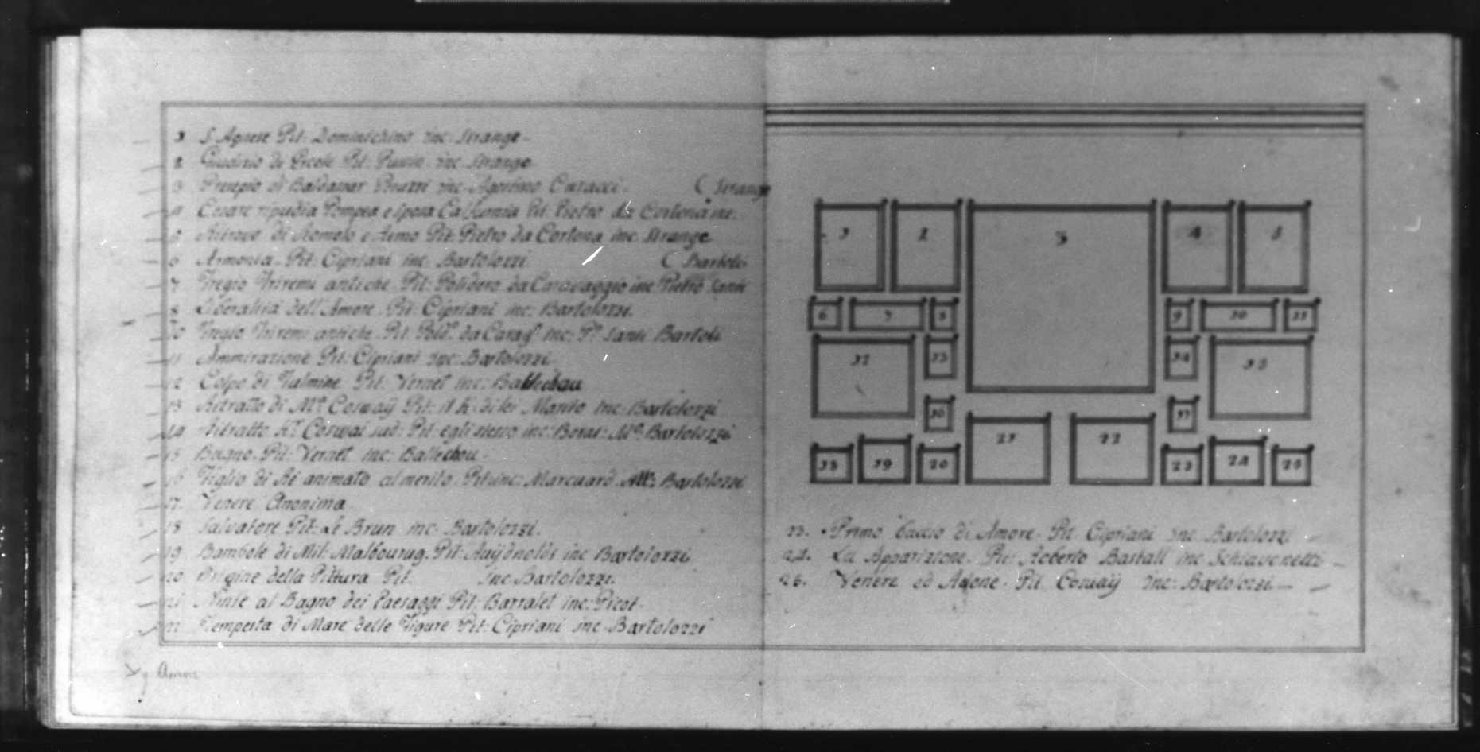 1 S. Agnese Pit: Dominichino inc: Strange
2 Giudizio di Ercole Pit: Pusin inc: Strange
3 Presepio di Baldassar Peruzzi inc: Agostino Caracci. ( Strange
4 Cesare ripudia Pompea e sposa Calfurnia Pit: Pietro da Cortona inc:
5 Ritrovo di Romolo e Remo Pit: Pietro da Cortona inc: Strange
6 Armonia Pit: Cipriani inc: Bartolozzi ( Bartoli
7 Fregio Triremi antiche Pit: Polidoro da Caravaggio inc Pietro Santi
8 Liberalità dell'Amore Pit: Cipriani inc: Bartolozzi.
10 Fregio Triremi antiche Pit: da inc: Santi Bartoli
11 Ammirazione Pit: Cipriani inc: Bartolozzi
12 Colpo di Fulmine Pit: Vernet inc: Ballechou
13 Ritratto di Cosway Pit: di lei Marito inc: Bartolozzi
14 Ritratto di Cosvai Pit: egli stesso inc: Bartolozzi
15 Bagno Pit: Vernet inc: Ballechou
16 Figlio di animato al merito Marcuard Bartolozzi
17 Venere Anonima
18 Salvatore Pit: Le Brun inc: Bartolozzi.
19 Bambole di Mil: Pit: inc Bartolozzi
20 Origine della Pittura Pit: inc Bartolozzi.
21 Ninfe al Bagno dei Paesaggi Pit: Barralet inc: Picot
22 Tempesta di Mare delle Figure Pit: Cipriani inc Bartolozzi
Amore
1 2 3 4 5
6 7 8 9 10 11
12 13 14 15
16 17
18 19 20 21 22 23 24 25
23. Primo baccio di Amore Pit Cipriani inc Bartolozzi
24. La Apparizione Pit: Roberto inc Schiavonetti
26. Venere ed Adone Pit. Cosway inc: Bartolozzi